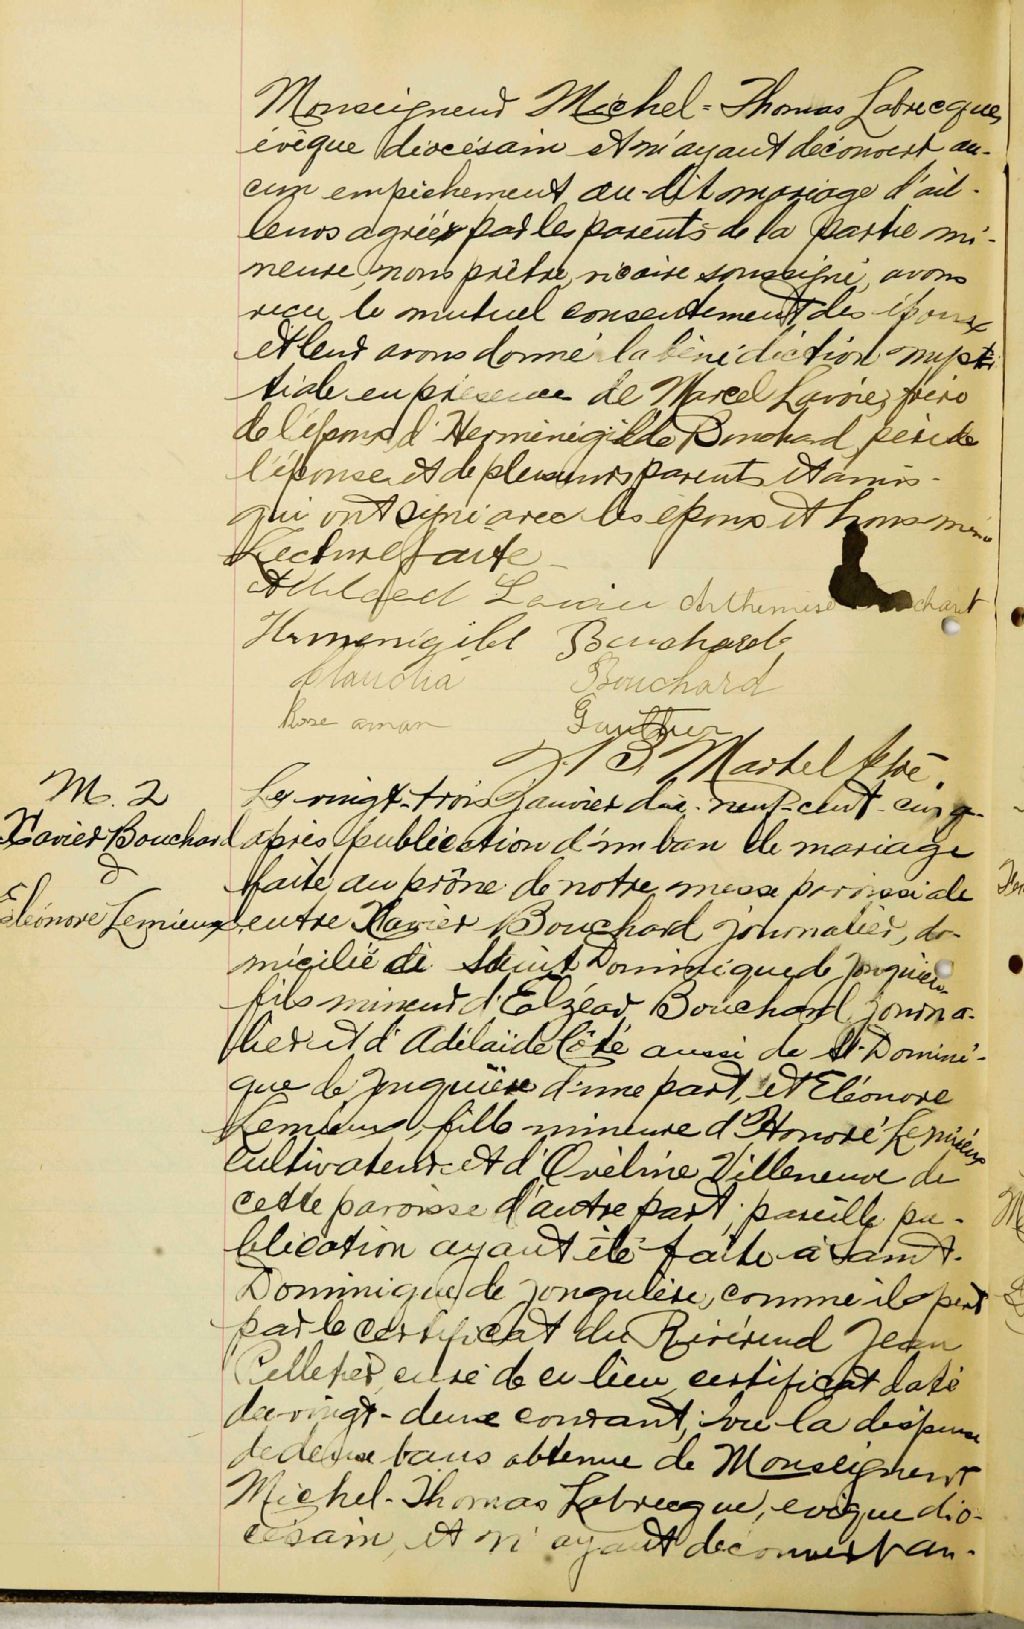 Monseigneur Michel-Thomas Labrecque,
évêque diocésain et n'ayant découvert au-
cun empêchement au dit mariage d'ail-
leurs agréé par les parents de la partie mi-
neure, nous prêtre, vicaire soussigné, avons
reçu le mutuel consentement des époux
et leur avons donné la bénédiction nup
tiale en présence de Marcel Lavoie, frère
de l'époux, d'Herménégilde Bouchard, père de
l'épouse et de plusieurs parents et amis
qui ont signé avec les époux et nous même
Lecture faite
Lavoie Arthemise
Bouchard
Claudia Bouchard
Rose aman Gauthier
Martel Ptre
M. 2
Xavier Bouchard
&
Eléonore Lemieux
Le vingt-trois janvier dix-neuf-cent-cinq
après publication d'un ban de mariage
faite au prône de notre messe paroissiale
entre Xavier Bouchard journalier, do-
micilié de Saint Dominique de Jonquière
fils mineur d'Elzéar Bouchard, journa-
lier et d'Adélaïde Côté aussi de St Domini-
que de Jonquière d'une part, et Eléonore
Lemieux, fille mineure d'Honoré Lemieux
cultivateur et d'Oveline Villeneuve de
cette paroisse d'autre part; pareille pu-
blication ayant été faite à Saint-
Dominique de Jonquière, comme il apert
par le certificat du Révérend Jean
Pelletier, curé de ce lieu, certificat daté
du vingt-deux courant; vu la dispense
de deux bans obtenue de Monseigneur
Michel-Thomas Labrecque, évêque dio-
césain, et n'ayant découvert au-